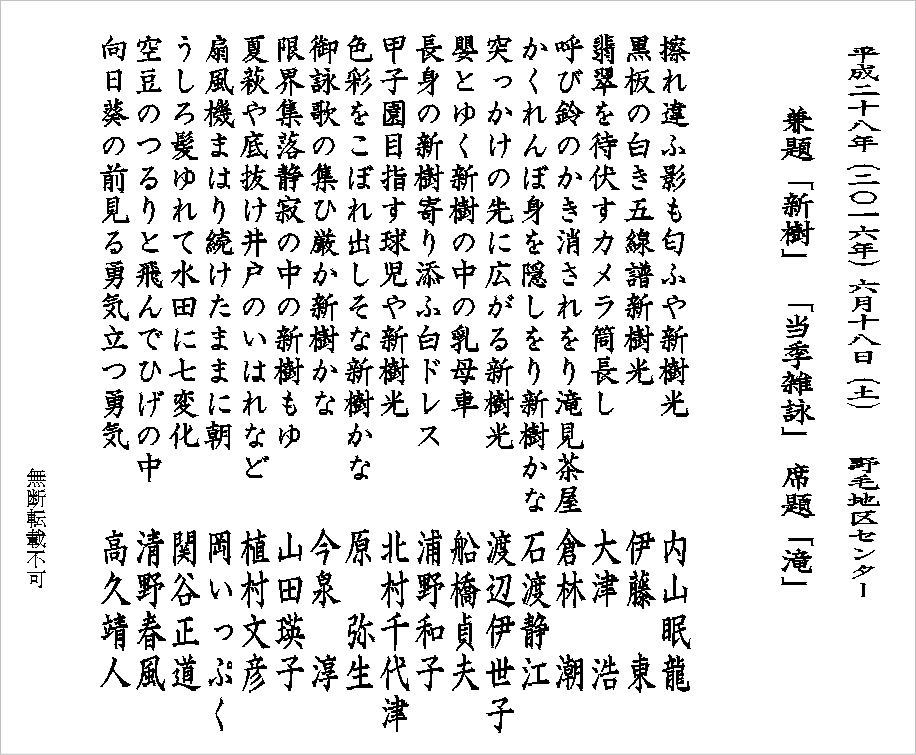 平成二十八年(二〇一六年)六月十八日(土) 野毛地区センター
兼題「新樹」 「当季雑詠」 席題「滝」
擦れ違ふ影も匂ふや新樹光 内山眠龍
黒板の白き五線譜新樹光 伊藤東
翡翠を待伏すカメラ筒長し 大津浩
呼び鈴のかき消されをり滝見茶屋 倉林潮
かくれんぼ身を隠しをり新樹かな 石渡静江
突っかけの先に広がる新樹光 渡辺伊世子
嬰とゆく新樹の中の乳母車 船橋貞夫
長身の新樹寄り添ふ白ドレス 浦野和子
甲子園目指す球児や新樹光 北村千代津
色彩をこぼれ出しそな新樹かな 原弥生
御詠歌の集ひ厳か新樹かな 今泉淳
限界集落静寂の中の新樹もゆ 山田瑛子
夏萩や底抜け井戸のいはれなど 植村文彦
扇風機まはり続けたままに朝 岡いっぷく
うしろ髪ゆれて水田に七変化 関谷正道
空豆のつるりと飛んでひげの中 清野春風
向日葵の前見る勇気立つ勇気 高久靖人
無断転載不可